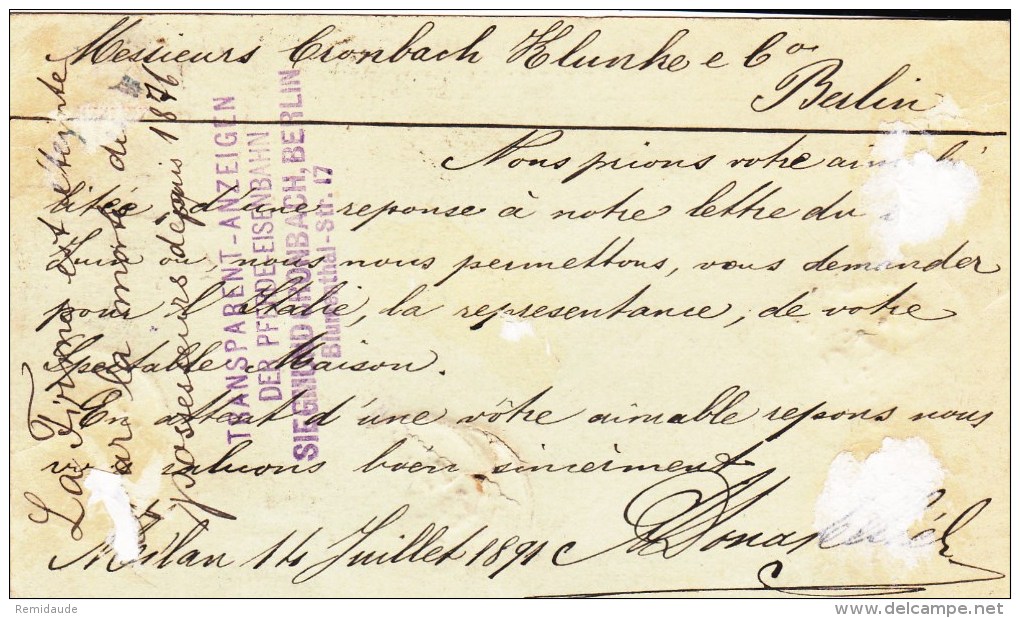 Messieurs Cronbach Klunke e Co
Berlin
Nous prions votre
d'une reponse à notre lettre du
Juin où, nous nous permettons, vous demander
pour l'Italie, la representance, de votre
Spectable Maison.
En attent d'une vôtre aimable repons nous
saluons bien sincerment
Milan 14 Juillet 1891
La Firme est etteynte
par la mort du
possesseurs depuis 1876
TRANSPARENT-ANZEIGEN
DER PFERDEEISENBAHN
SIEGMUND CRONBACH, BERLIN
Blumenthal-Str. 17
Remidaude
www.delcampe.net